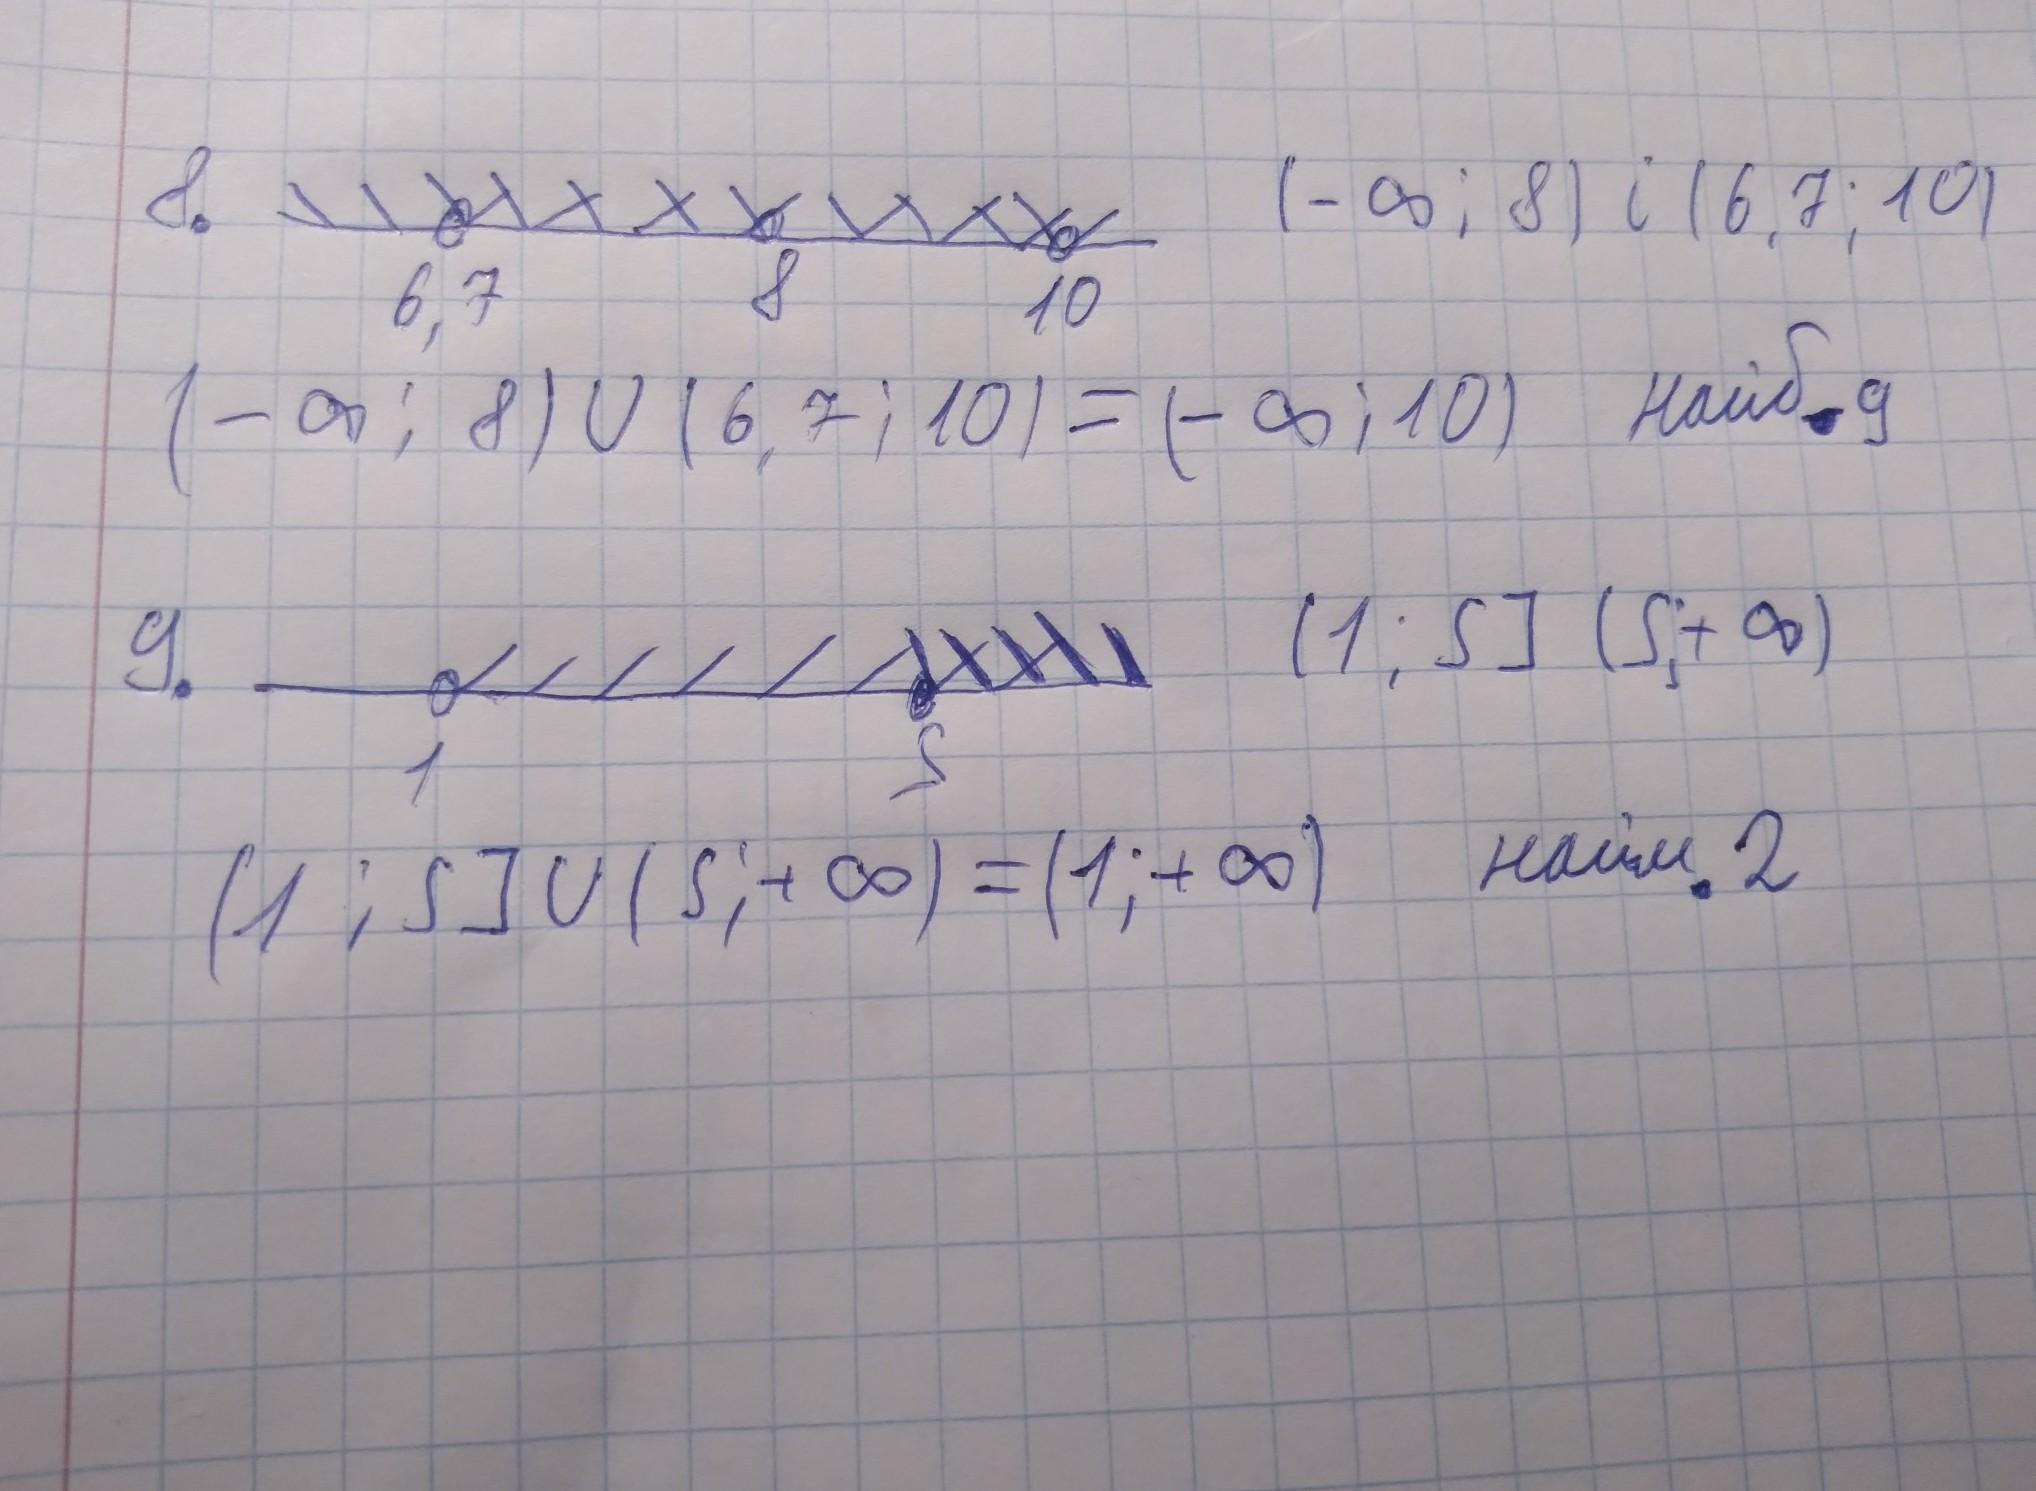 8. (-∞; 8) i (6,7; 10)
6,7 8 10
(-∞; 8) ∪ (6,7; 10) = (-∞; 10) найб. 9
9. (1; 5] (5; +∞)
1 5
(1; 5] ∪ (5; +∞) = (1; +∞) найм. 2